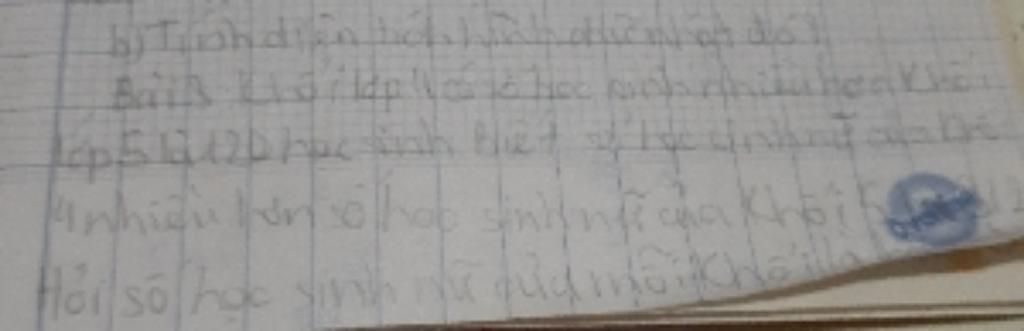 b) Tính diện tích hình chữ nhật đó?
Bài 3 Khối lớp 4 có số học sinh nhiều hơn Khối
lớp 5 là 120 học sinh Biết số học sinh nữ của khối
4 nhiều hơn số học sinh nữ của Khối 5
Hỏi số học sinh nữ của mỗi Khối là